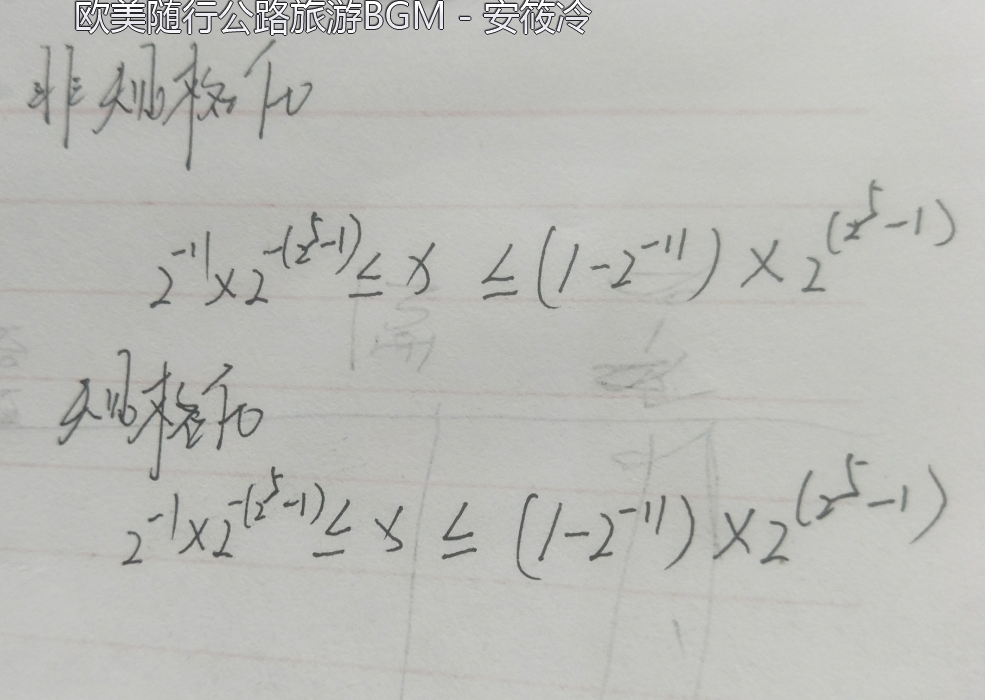 欧美随行公路旅游BGM - 安筱冷
非规格化
2^{-11} × 2^{-(2^5-1)} ≤ x ≤ (1-2^{-11}) × 2^{(2^5-1)}
规格化
2^{-1} × 2^{-(2^5-1)} ≤ x ≤ (1-2^{-11}) × 2^{(2^5-1)}